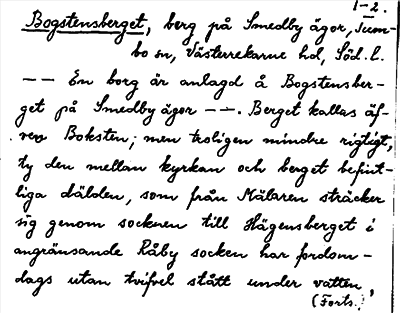 1-2.
Bogstensberget, berg på Smedby ägor, Tum-
bo sn, Västerrekarne hd, Söd. l.
-- En borg är anlagd å Bogstensber-
get på Smedby ägor --. Berget kallas äf-
ven Boksten; men troligen mindre rigtigt,
ty den mellan kyrkan och berget befint-
liga dälden, som från Mälaren sträcker
sig genom socknen till Hägensberget i
angränsande Råby socken har fordom-
dags utan tvifvel stått under vatten,
(Forts.)